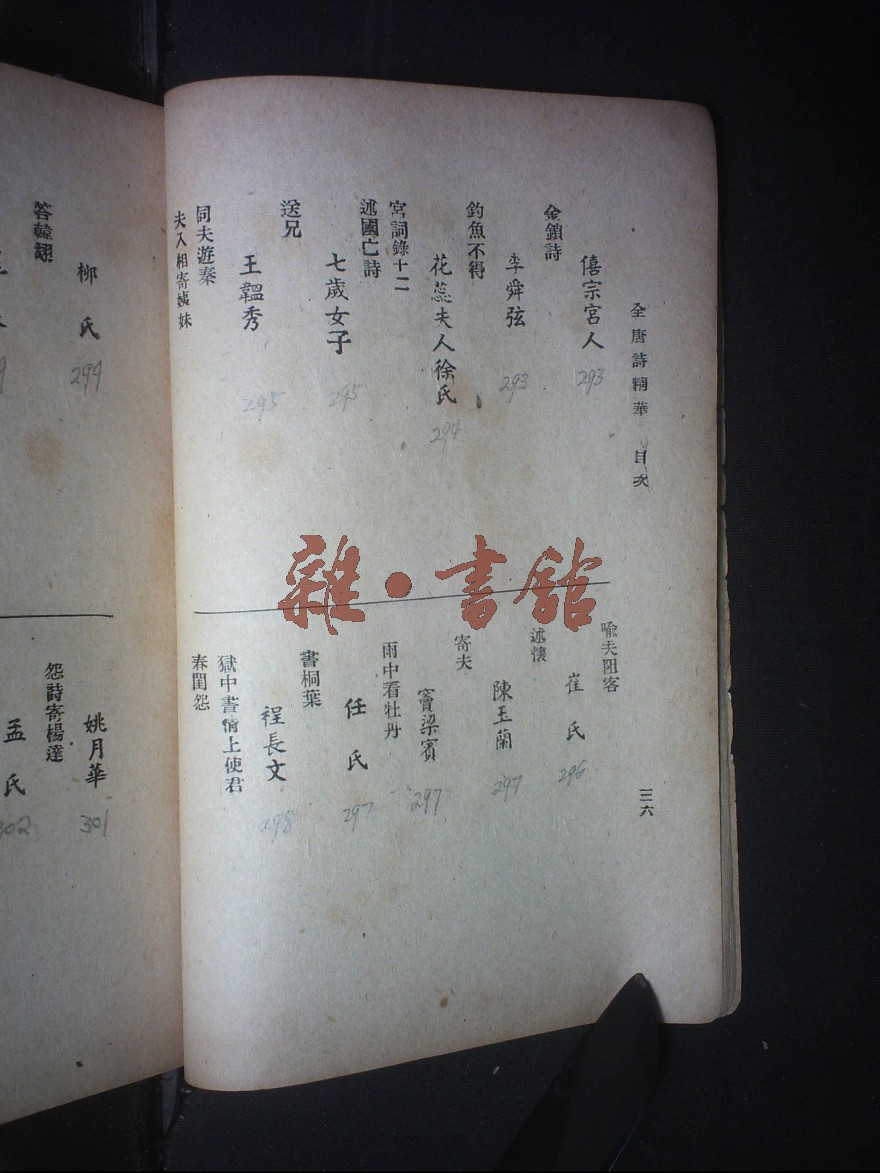 全唐詩精華 目次
三六
僖宗宮人 293
金鎖詩
李舜弦 293
釣魚不得
花蕊夫人徐氏 294
宮詞錄十二
述國亡詩
七歲女子 295
送兄
王韞秀 295
同夫遊秦
夫入相寄姨妹
喩夫阻客
崔氏 296
述懷
陳玉蘭 297
寄夫
竇梁賓 297
雨中看牡丹
任氏 297
書桐葉
程長文 298
獄中書情上使君
春閨怨
柳氏 299
答韓翃
姚月華 301
怨詩寄楊達
孟氏 302
雜·書館